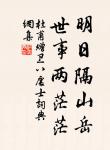 明日隔山岳
世事两茫茫
杜甫赠卫八处士词典
网集